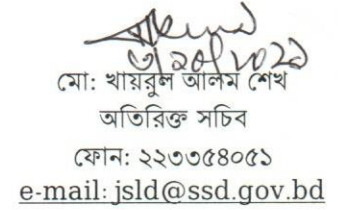 মো: খায়রুল আলম শেখ
অতিরিক্ত সচিব
ফোন: ২২৩৩৫৪০৫১
e-mail: jsld@ssd.gov.bd